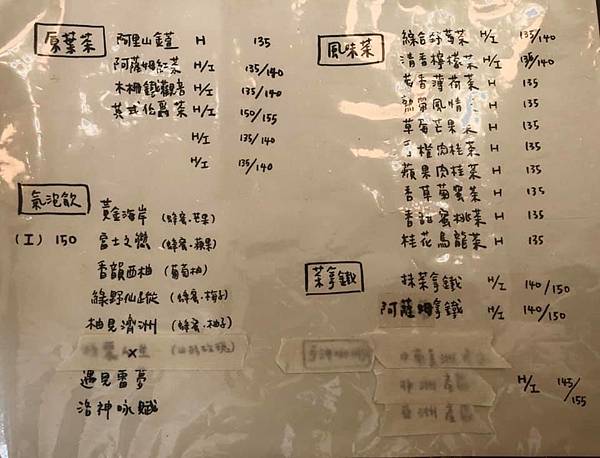 原葉茶
阿里山金萱 H 135
阿薩姆紅茶 H/I 135/140
木柵鐵觀音 H/I 135/140
英式伯爵茶 H/I 150/155
H/I 135/140
H/I 135/140
氣泡飲
(I) 150
黃金海岸 (蜂蜜.芒果)
富士之戀 (蜂蜜.蘋果)
香韻西柚 (葡萄柚)
綠野仙蹤 (蜂蜜.梅子)
柚見濟洲 (蜂蜜.柚子)
遇見雷夢
洛神咏賦
風味茶
綜合莓茶 H/I 135/140
清香檸檬茶 H/I 135/140
香薄荷茶 H 135
熱帶風情 H 135
草莓芒果茶 H 135
香橙肉桂茶 H 135
蘋果肉桂茶 H 135
香草蘭蜜茶 H 135
香甜蜜桃茶 H 135
桂花烏龍茶 H 135
茶拿鐵
抹茶拿鐵 H/I 140/150
阿薩姆拿鐵 H/I 140/150
H/I 145/155